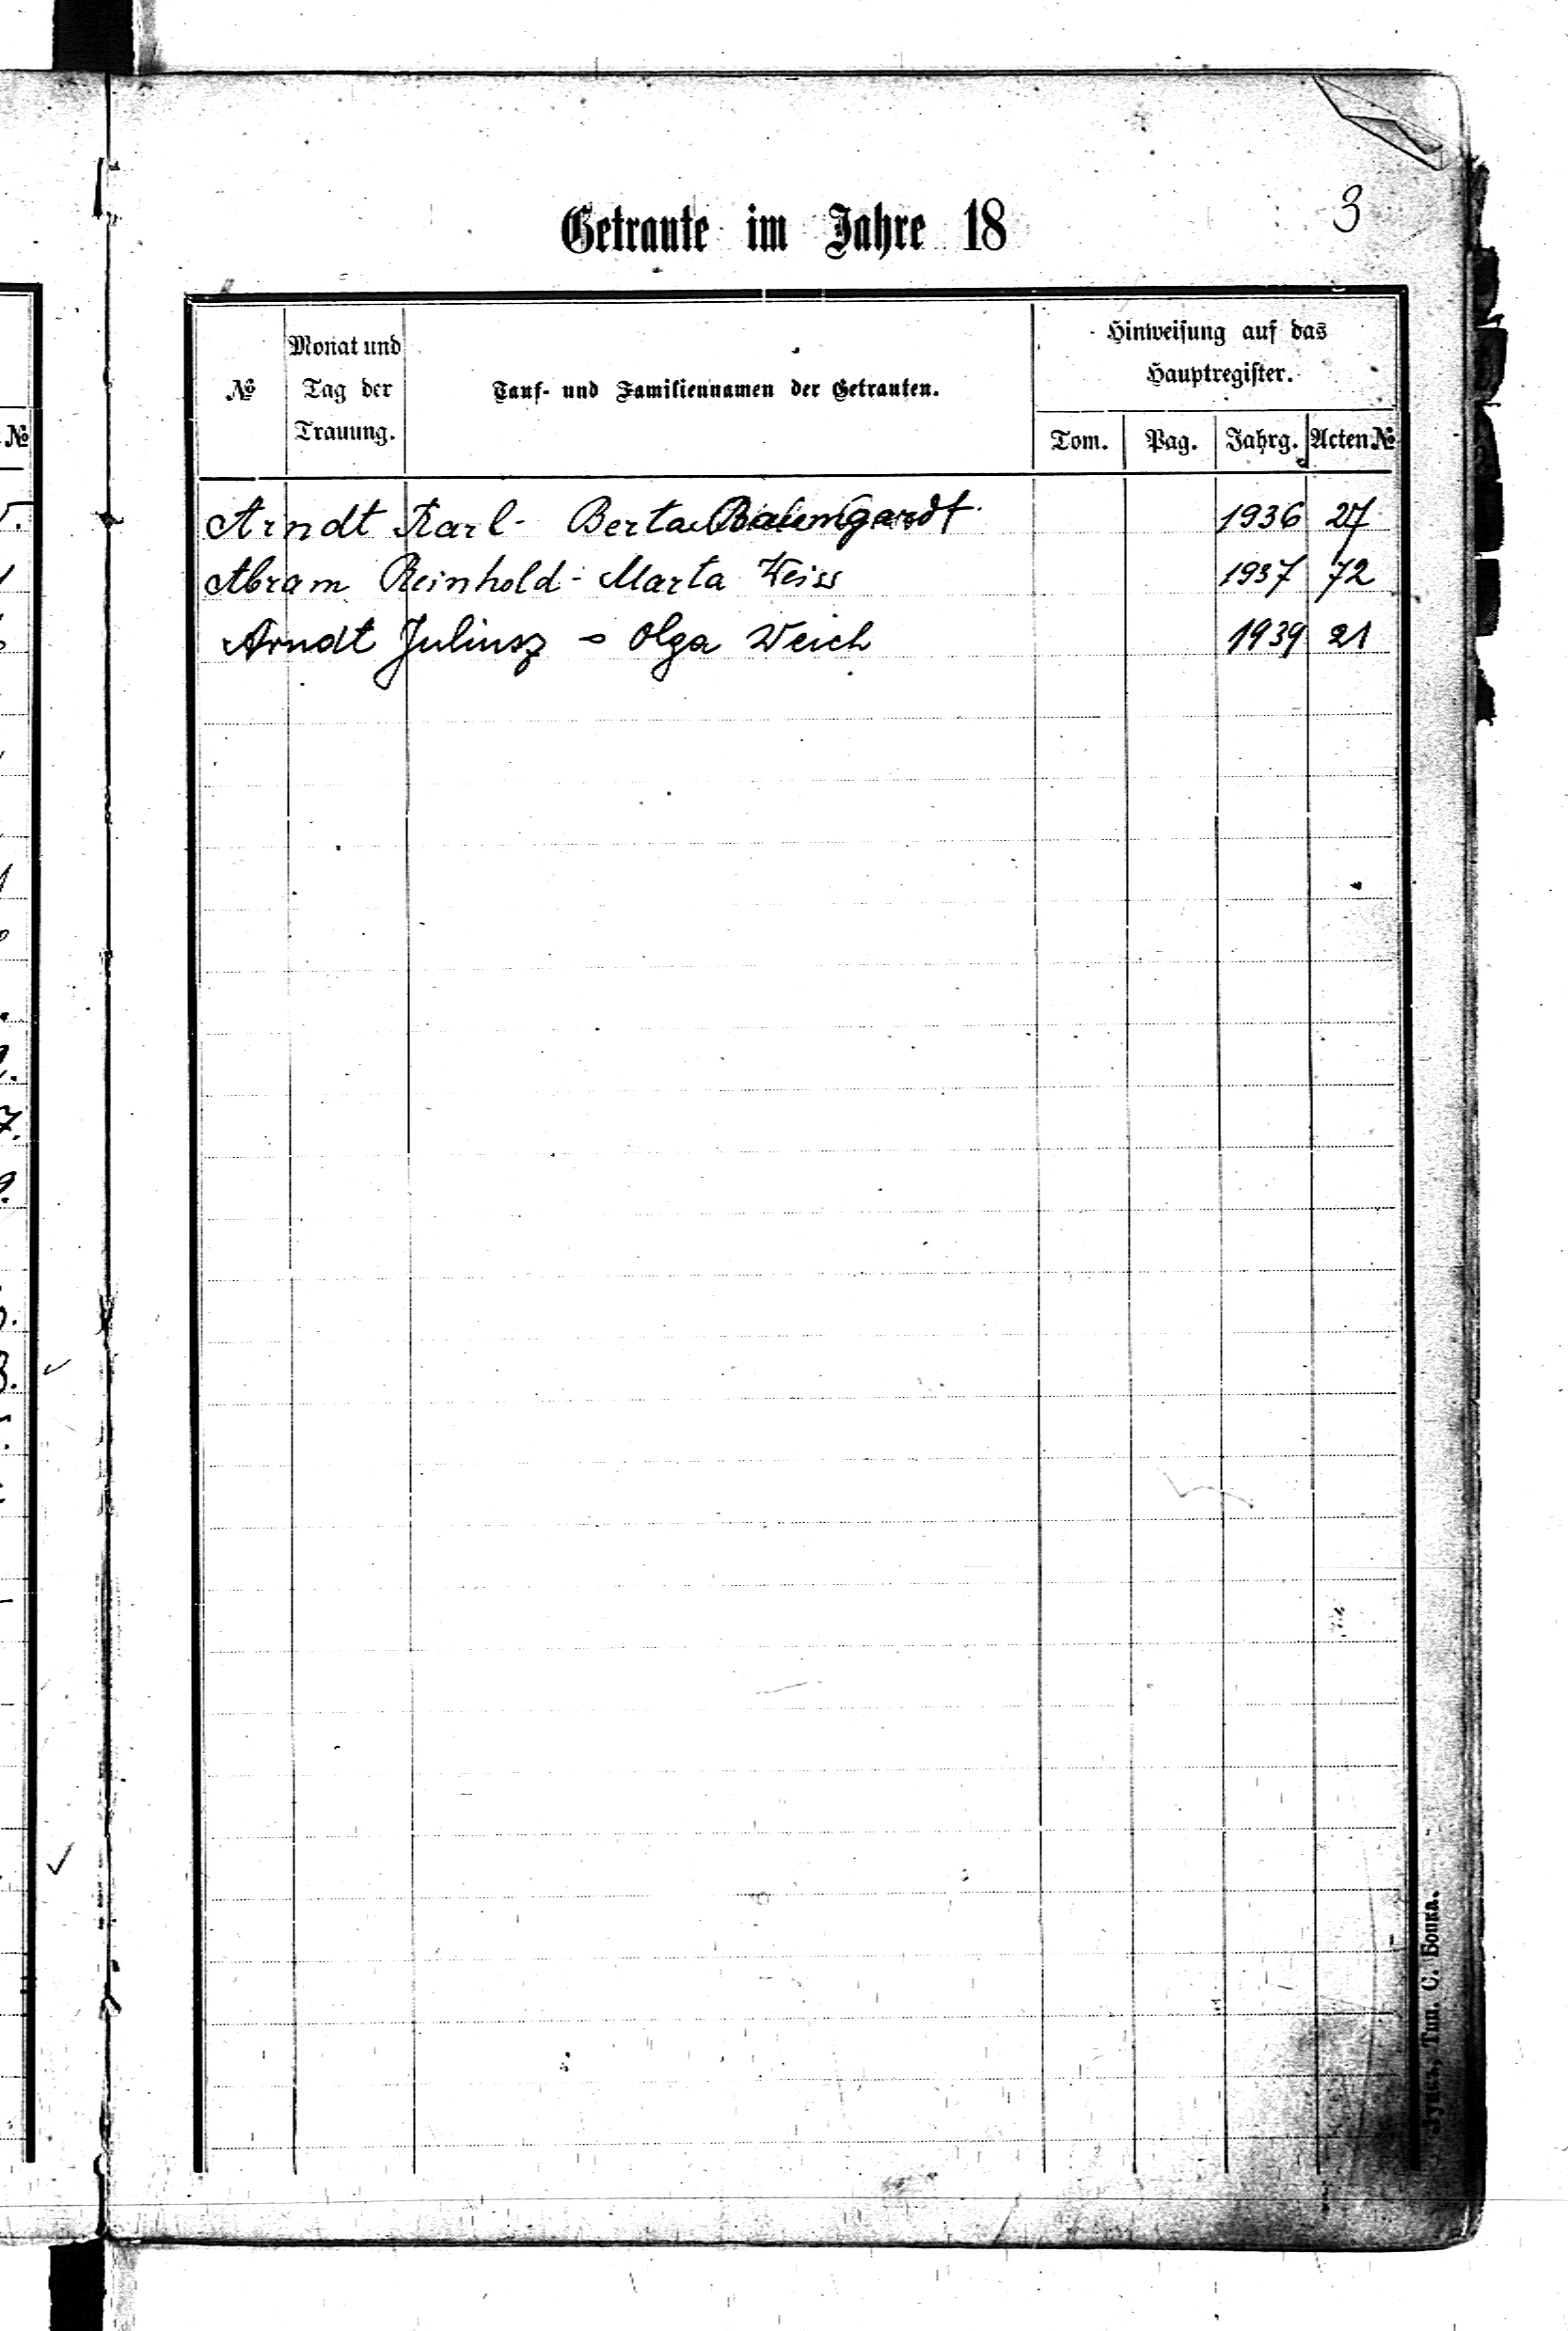 3
Getraute im Jahre 18
№
Monat und
Tag der
Trauung.
Tauf- und Familiennamen der Getrauten.
Hinweisung auf das
Hauptregister.
Tom. Pag. Jahrg. Acten №
Arndt Karl - Berta Baumgardt 1936 27
Abram Reinhold - Marta Weiss 1937 72
Arndt Juliusz - Olga Weich 1939 21
№
Тип. С. Бонка.